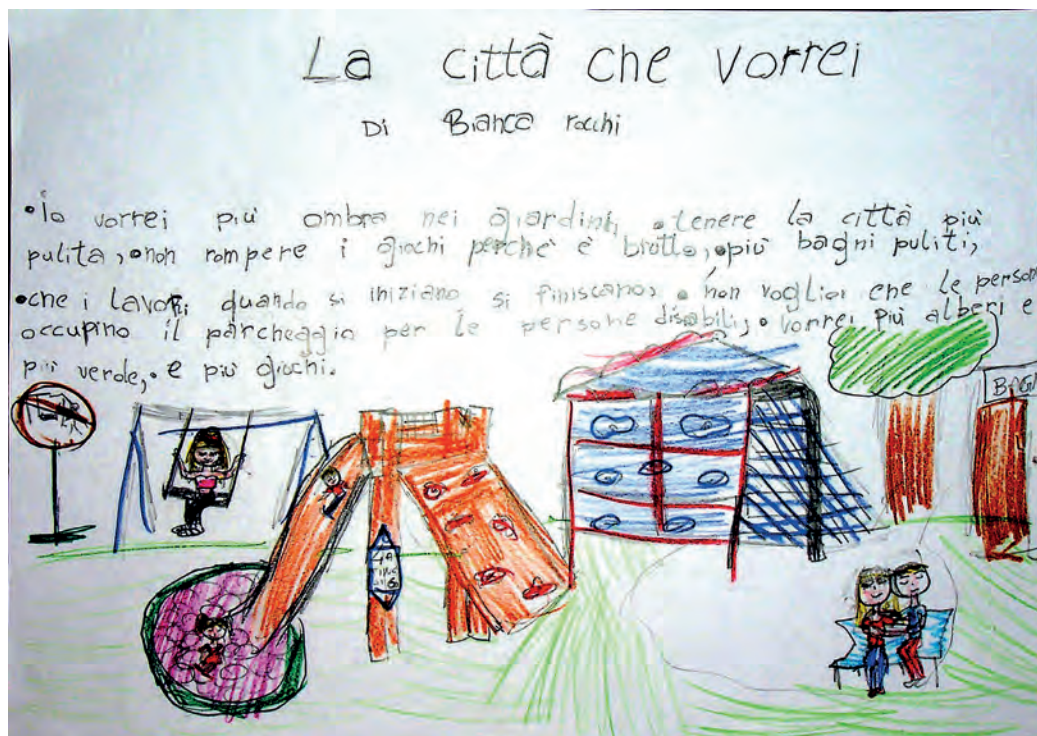 La città che vorrei
Di Bianca rocchi
•Io vorrei più ombra nei giardini, •tenere la città più
pulita, •non rompere i giochi perchè è brutto, •più bagni puliti,
•che i lavori quando si iniziano si finiscano, • non voglio che le person
occupino il parcheggio per le persone disabili, • vorrei più alberi e
più verde, • e più giochi.
BAGN